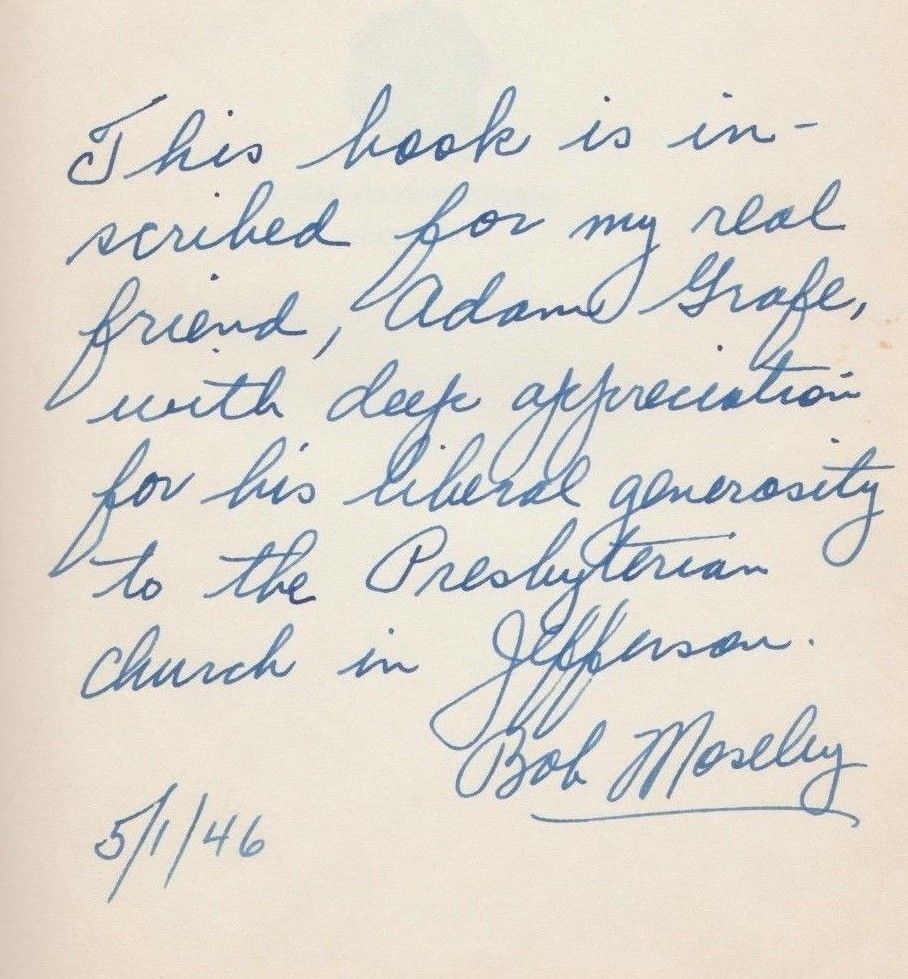 This book is in-
scribed for my real
friend, Adam Grafe,
with deep appreciation
for his liberal generosity
to the Presbyterian
church in Jefferson.
Bob Moseley
5/1/46